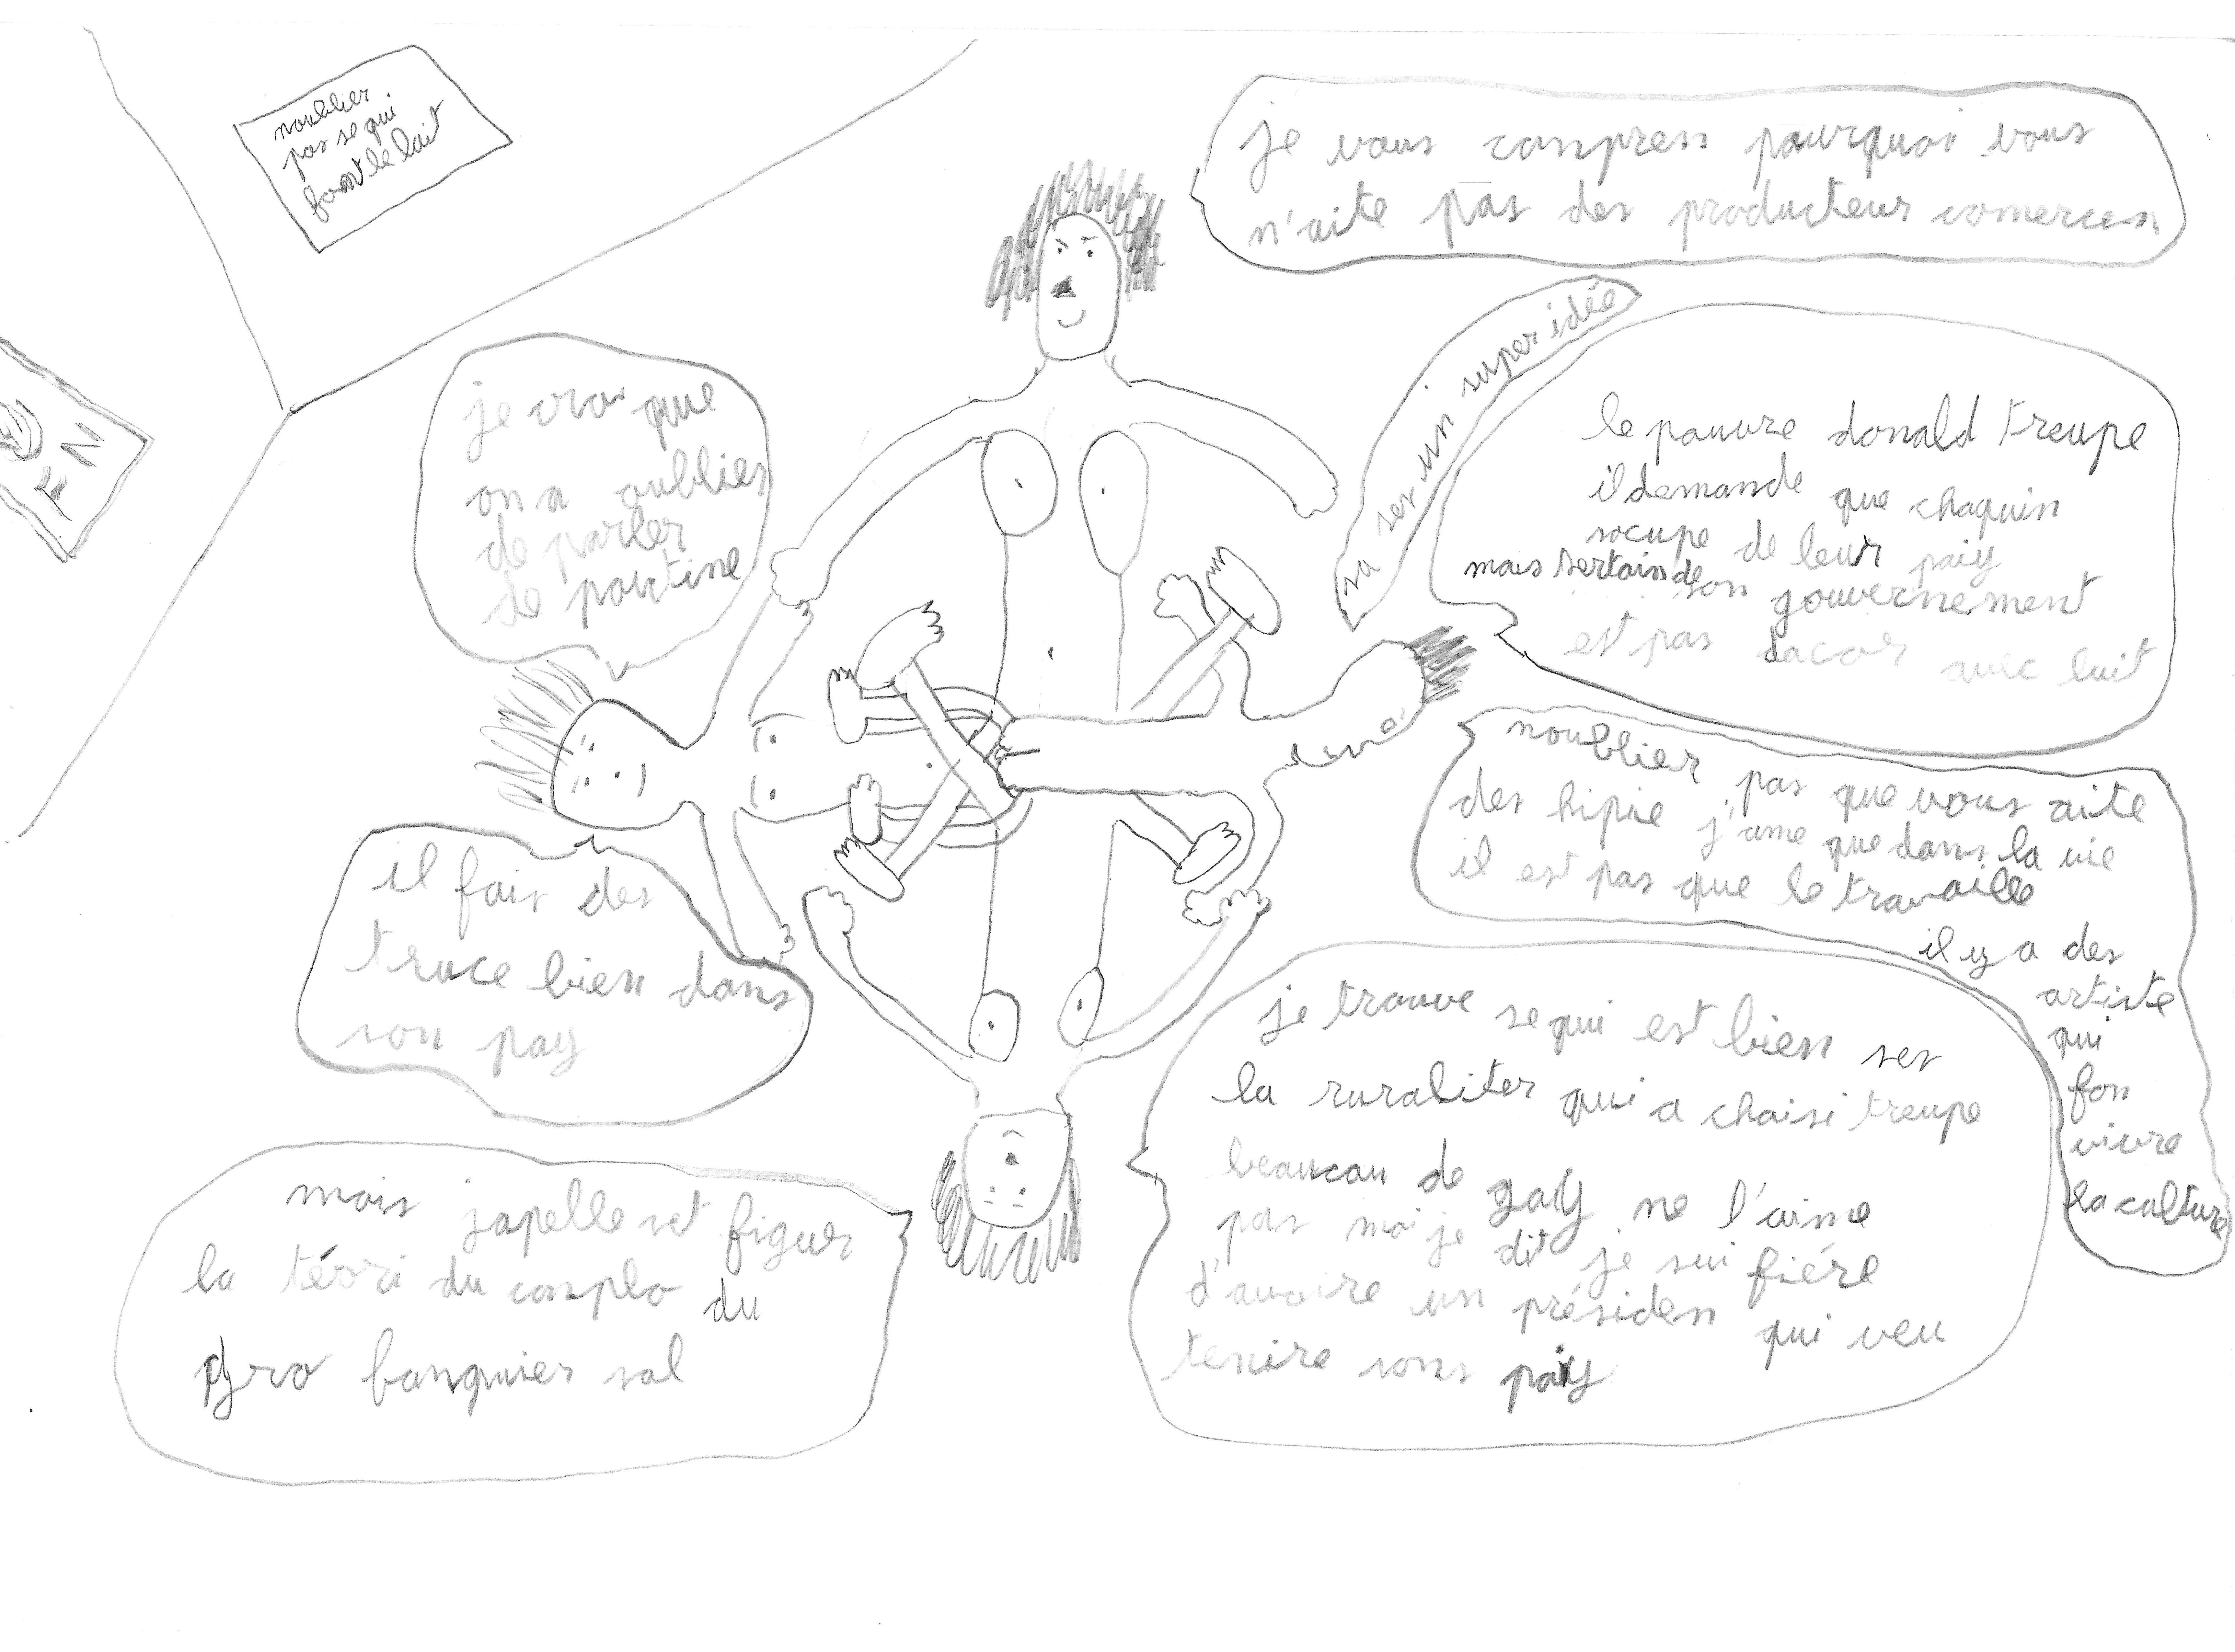 noublier
pas se qui
font le lait
FN
je vous compren pourquoi vous
n'aite pas des producteur comercen
sa ses un super idée
le pauvre donald treupe
il demande que chaquin
socupe de leur paiy
mais sertain de son gouvernement
est pas dacor avec luit
je croi que
on a oublier
de parler
de poutine
noublier pas que vous aite
des hipie j'ame que dans la vie
il est pas que le travaille
il y a des
artiste
qui
fon
vivre
la culture
il fais des
truce bien dans
son pay
je trouve se qui est bien ses
la ruraliter qui a choisi treupe
beaucou de gaiy ne l'aime
pas moi je dit je sui fiére
d'avoire un présiden qui veu
tenire sons paiy
mais j'apelle set figuer
la téori du complo du
gro banquier sal